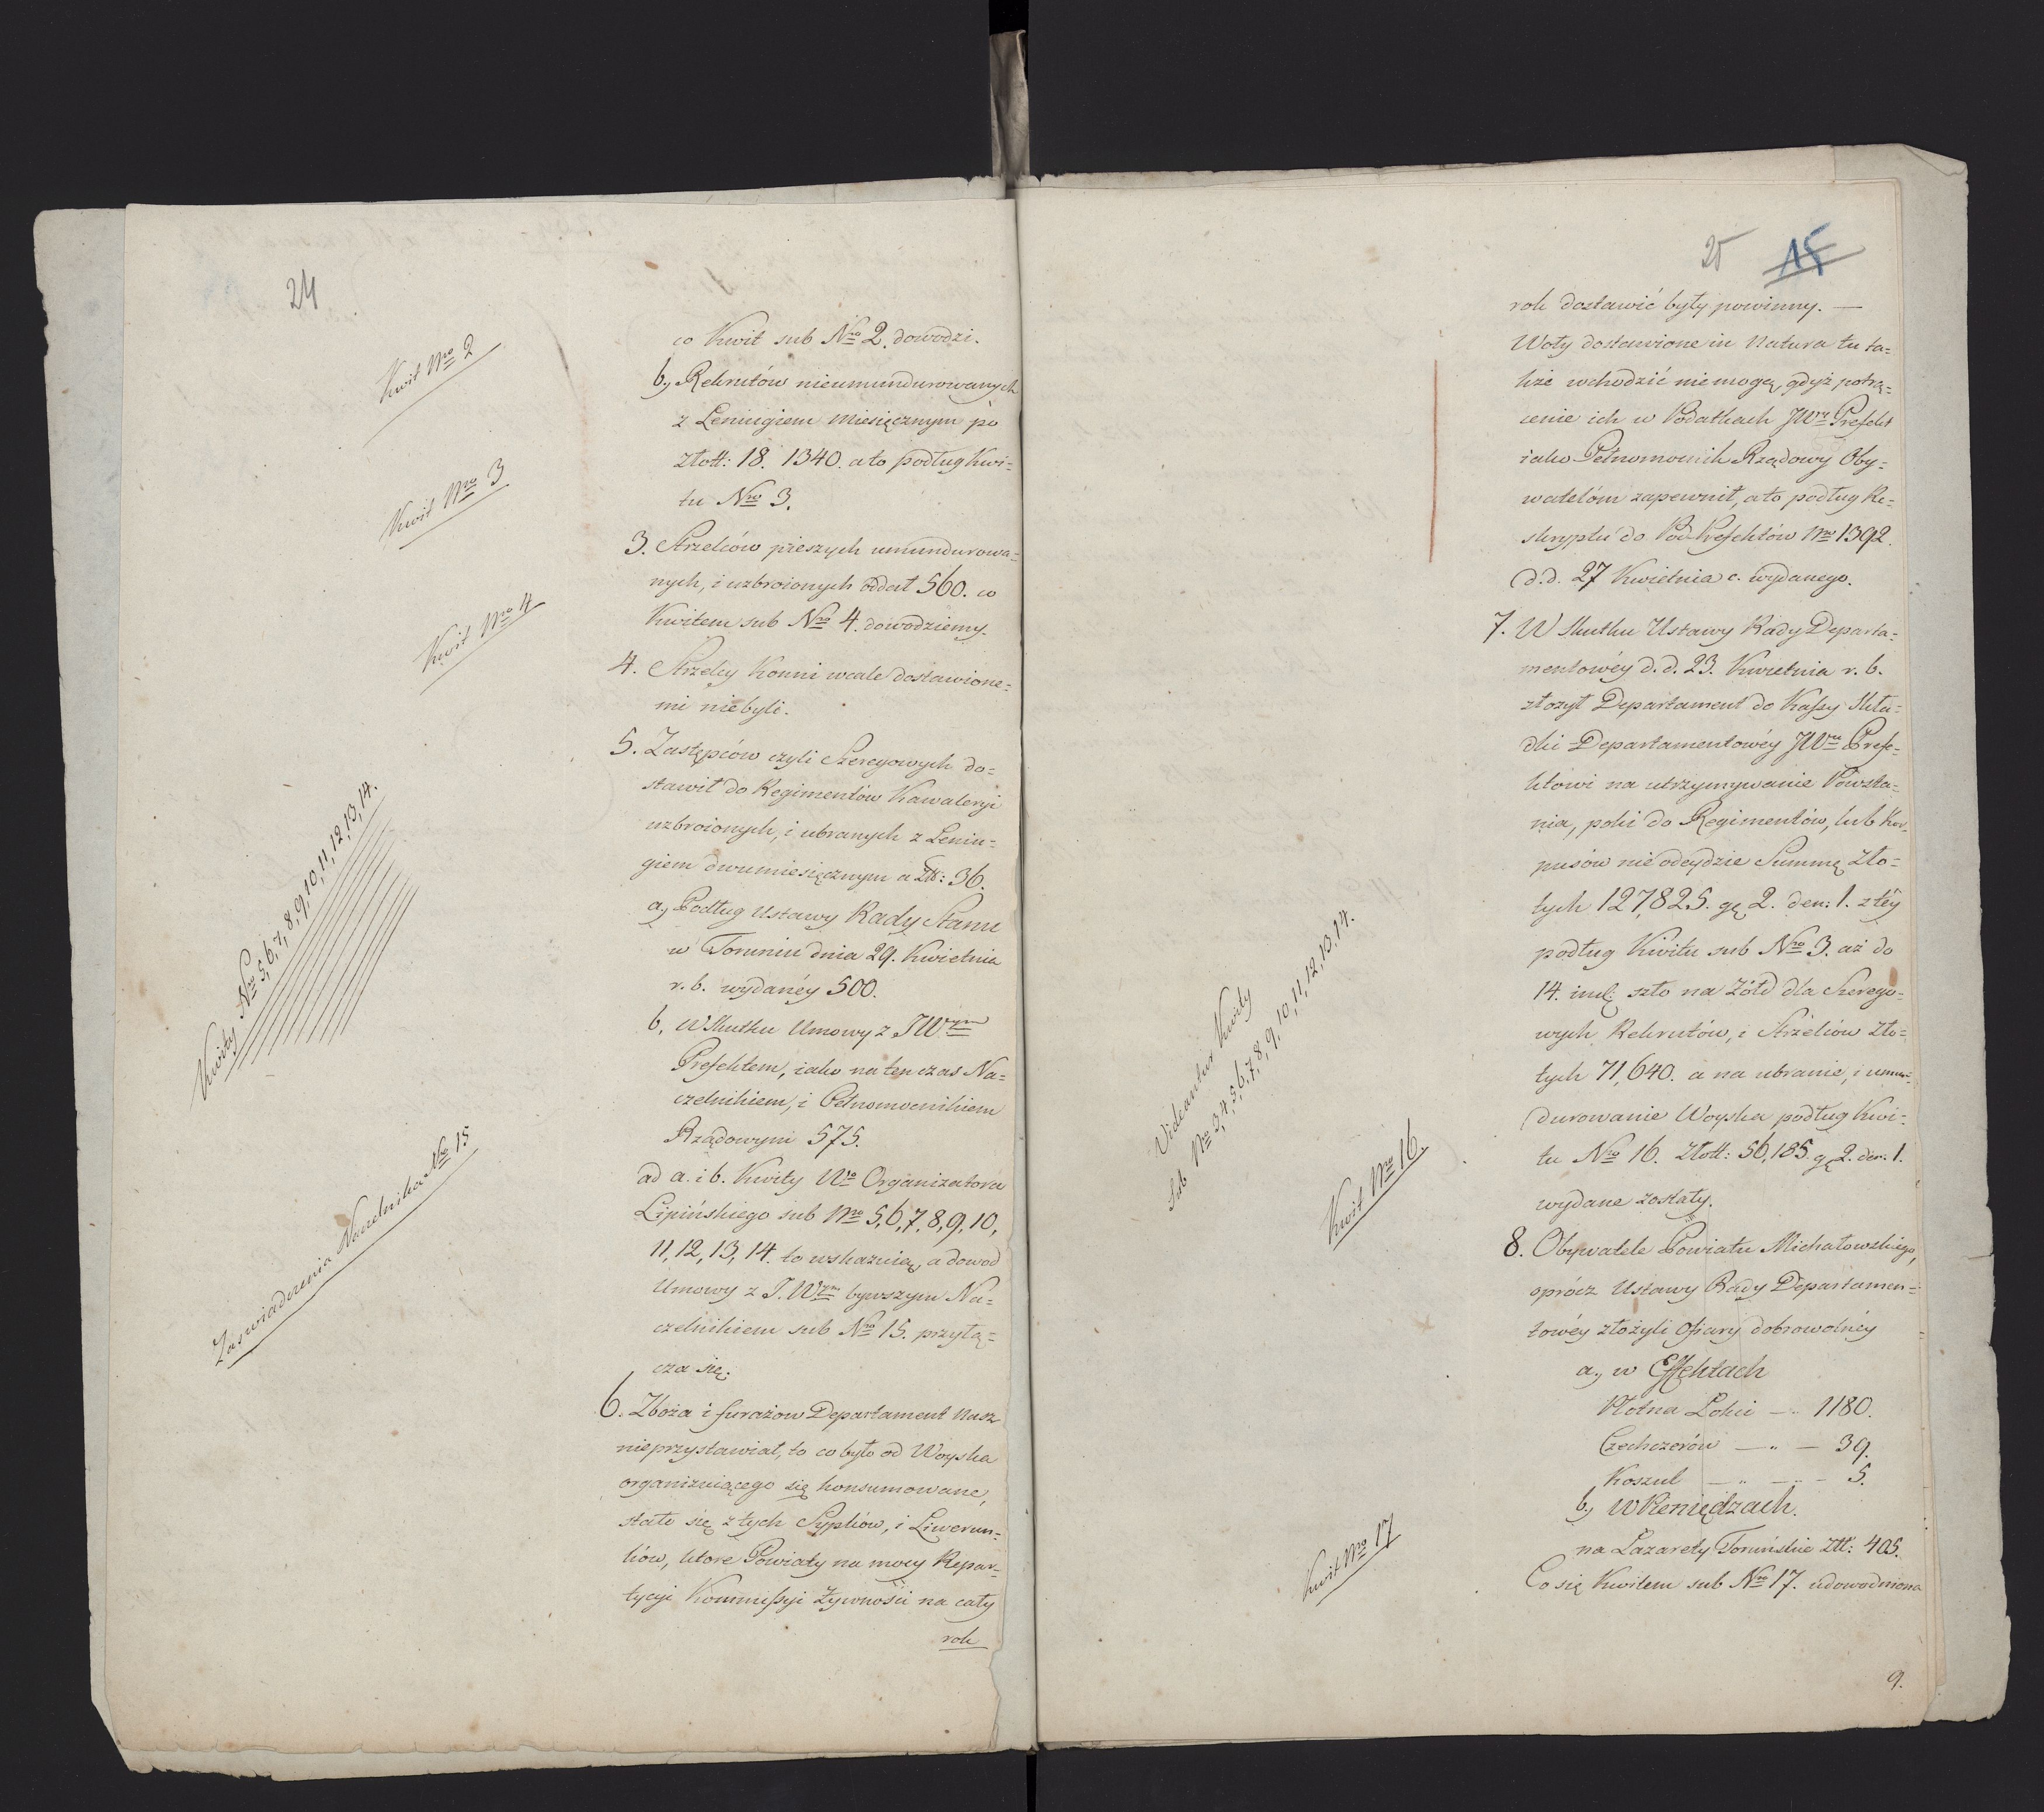 24
Kwit Nro 2
Kwit Nro 3
Kwit Nro 4
Kwity Nro 5, 6, 7, 8, 9, 10, 11, 12, 13, 14.
Zaswiadczenia Naczelnika Nro 15
co Kwit sub Nro 2. dowodzi.
b., Rekrutów nieumundurowanych
z Leningiem miesięcznym po
Złott: 18. 1340. a to podług Kwi=
tu Nro 3.
3. Strzelców pieszych umundurowa=
nych, i uzbroionych oddał 560. co
Kwitem sub Nro 4. dowodziemy.
4. Strzelcy Konni wcale dostawione=
mi niebyli.
5. Zastępców czyli Szeregowych do=
stawił do Regimentów Kawaleryi
uzbroionych, i ubranych z Lenin=
giem dwumiesięcznym a Złt: 36.
a., Podług Ustawy Rady Stanu
w Toruniu dnia 29. Kwietnia
r. b. wydanéy 500.
b, W Skutku Umowy z JWym
Prefektem, iako na ten czas Na=
czelnikiem, i Pełnomocnikiem
Rządowym 575.
ad a. i b. Kwity Wo Organizatora
Lipińskiego sub Nro 5, 6, 7, 8, 9, 10,
11, 12, 13, 14. to wskazuią, a dowod
Umowy z J. Wym bywszym Na=
czelnikiem sub Nro 15. przyłą=
cza się.
6. Zboża i furażow Departament nasz
nieprzystawiał, to co było od Woyska
organizuiącego się konsumowane,
stało się z tych Sypków, i Liwerun=
ków, które Powiaty na mocy Repar=
tycyi Kommissyi Żywności na cały
rok
25 15
rok dostawić były powinny. —
Woły dostawione in Natura tu ta=
kże wchodzić nie mogą, gdyż potrą=
cenie ich w Podatkach JWny Prefekt
iako Pełnomocnik Rządowy Oby=
watelóm zapewnił, a to podług Re=
skryptu do Pod Prefektów Nro 1392.
d. d. 27 Kwietnia c. wydanego.
7. W Skutku Ustawy Rady Departa=
mentowéy d. d. 23. Kwietnia r. b.
złozył Departament do Kassy Skła=
dki Departamentowéy JWu Prefe=
ktowi na utrzymywanie Powsta=
nia, poki do Regimentów, lub Kor=
pusów nie odeydzie Summę Zło=
tych 127,825. gę 2. den: 1. z téy
podług Kwitu sub Nro 3. aż do
14. incl: szło na Żółd dla Szerego=
wych Rekrutów, i Strzelców Zło=
tych 71,640. a na ubranie, i umun=
durowanie Woyska podług Kwi=
tu Nro 16. Złott: 56,185. gę 2. den: 1.
wydane zostały.
8. Obywatele Powiatu Michałowskiego,
oprócz Ustawy Rady Departamen=
towéy złożyli Ofiary dobrowolnéy
a., w Effektach
Płotna Łokci — " 1180.
Czechczerów — " — 39.
Koszul — " — " — 5.
b., w Pieniędzach.
na Lazarety Toruńskie Złt: 405.
Co się Kwitem sub Nro 17. udowodniona
9.
Videantur Kwity
sub Nro 3, 4, 5, 6, 7, 8, 9, 10, 11, 12, 13, 14.
Kwit Nro 16.
Kwit Nro 17